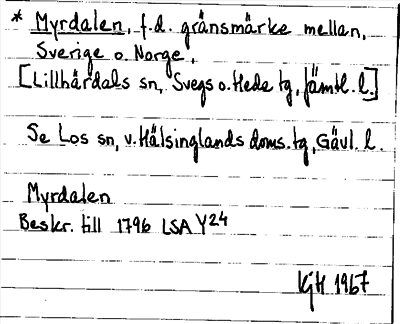 * Myrdalen, f.d. gränsmärke mellan,
Sverige o. Norge,
[Lillhärdals sn, Svegs o. Hede tg, Jämtl. l.]
Se Los sn, v. Hälsinglands doms. tg, Gävl. l.
Myrdalen
Beskr. till 1796 LSA Y24
KjH 1967